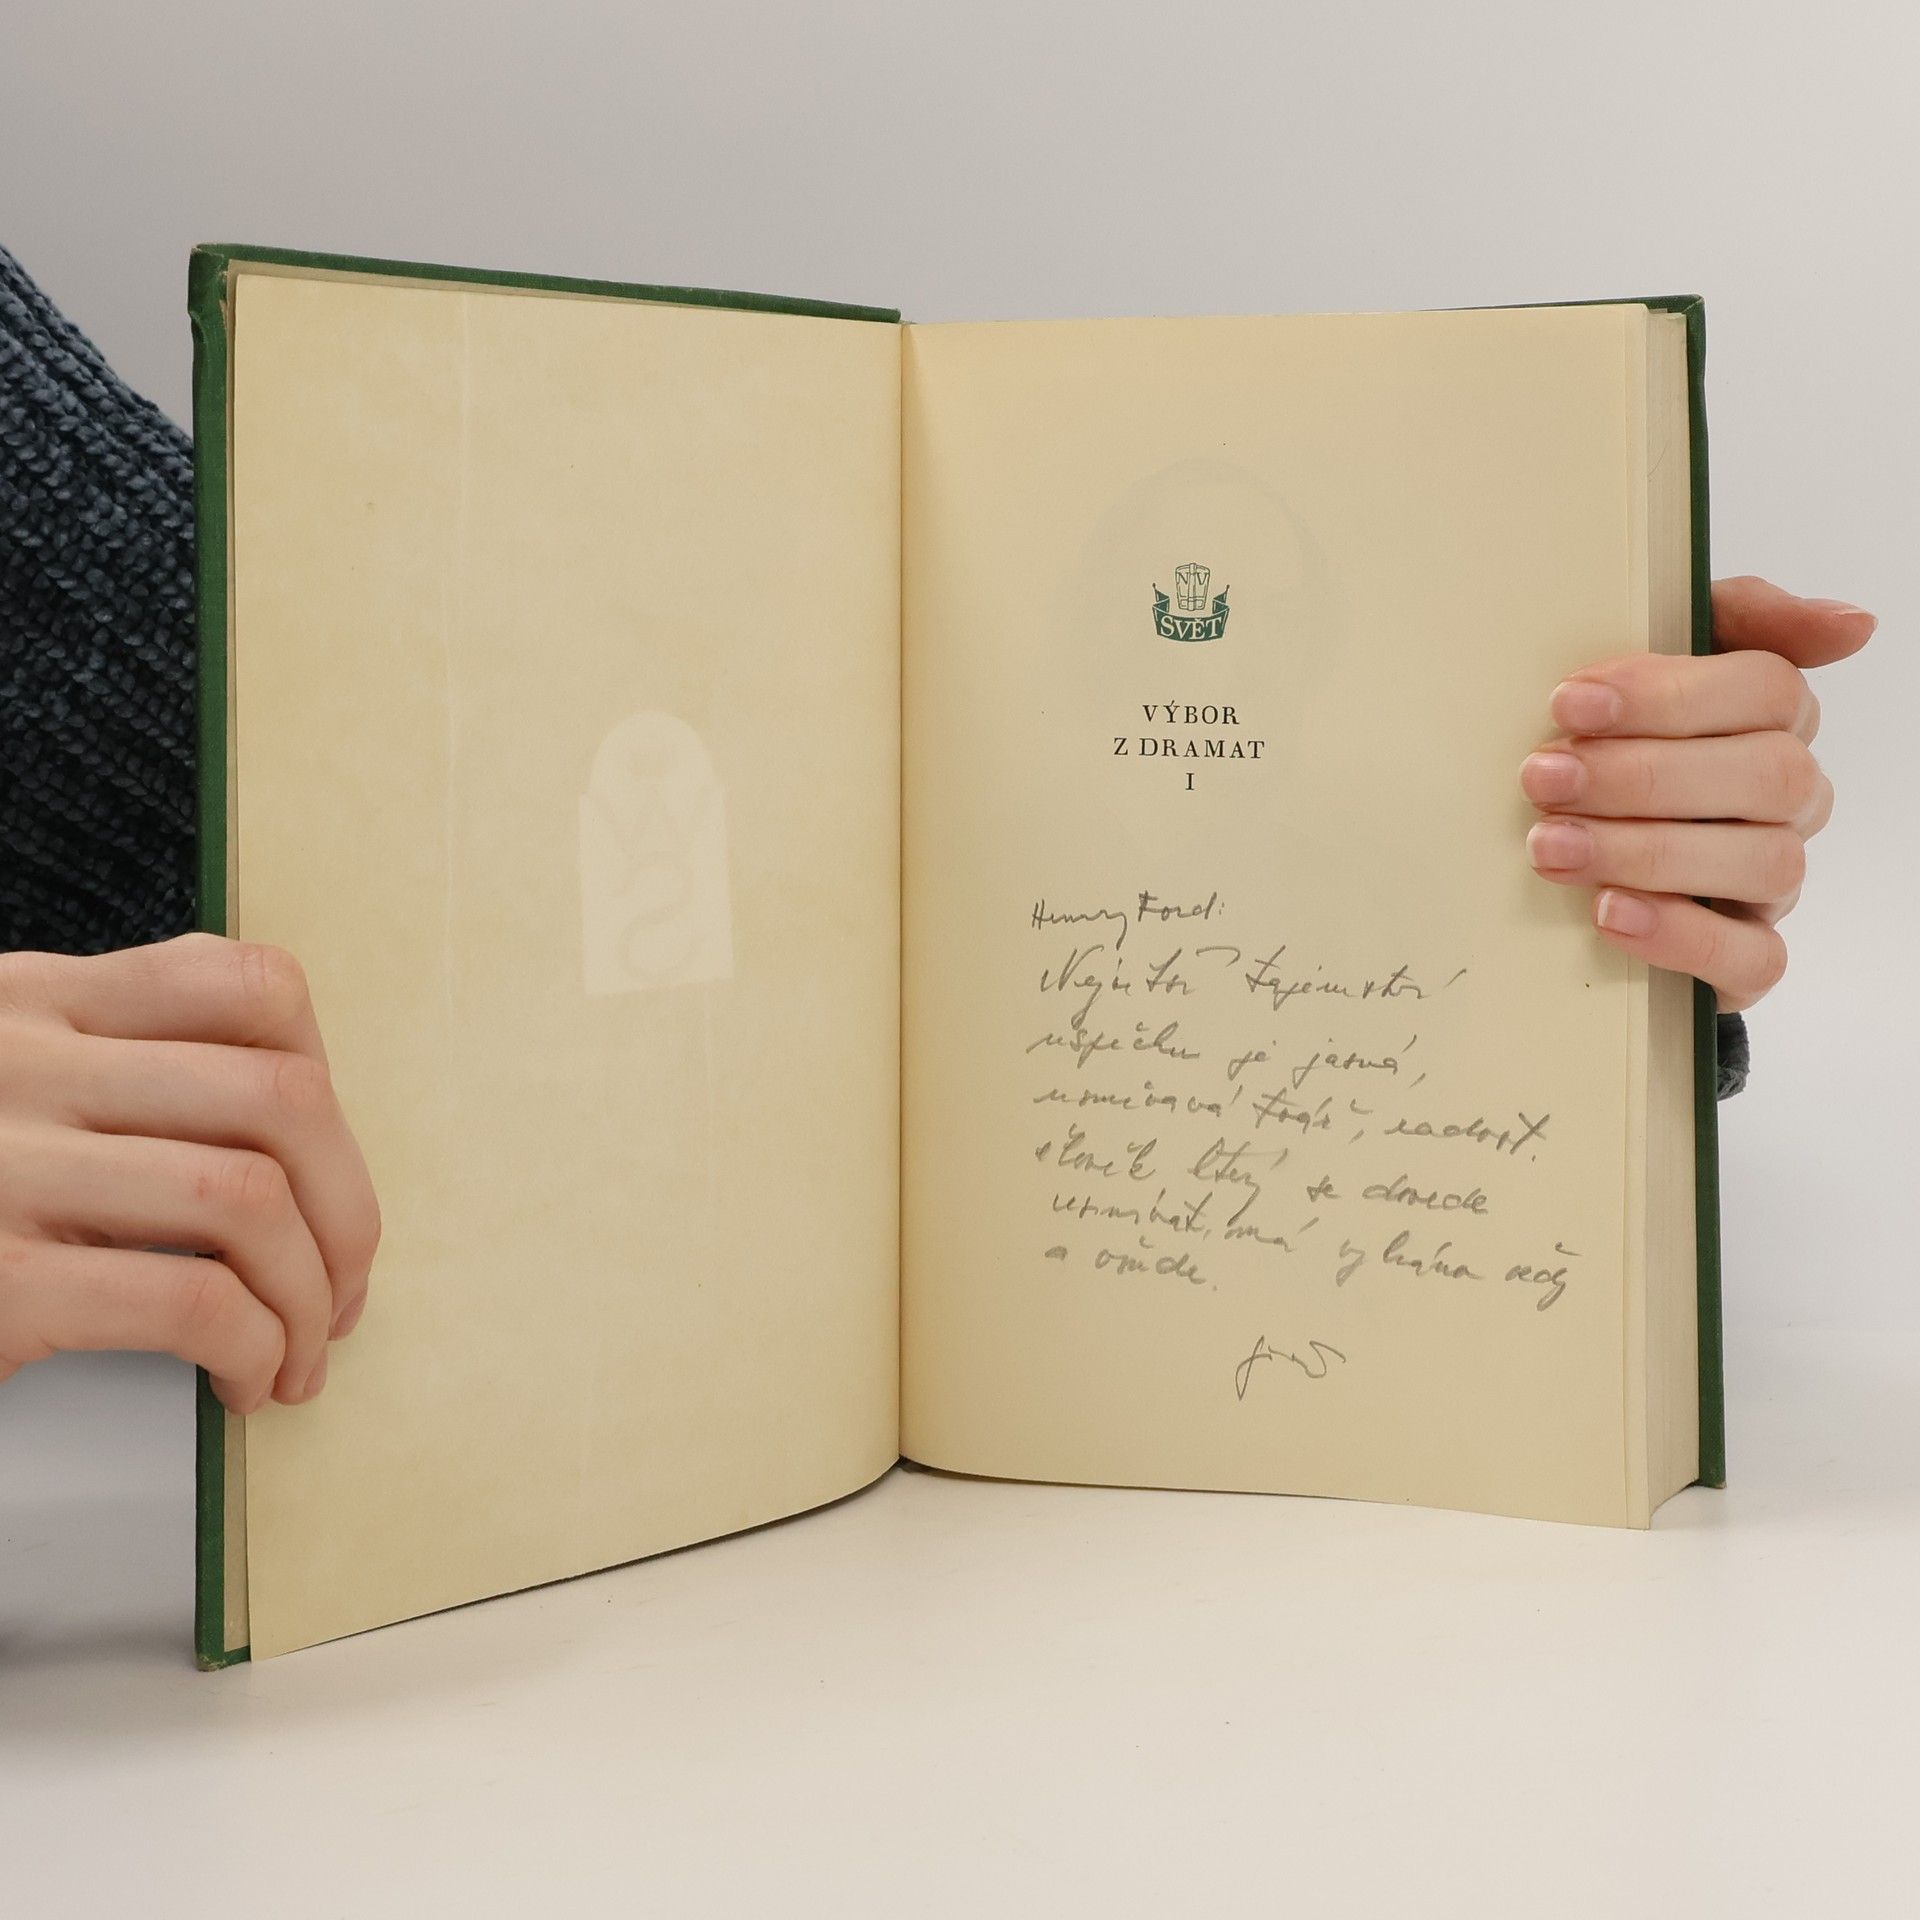 NV
SVĚT
VÝBOR
Z DRAMAT
I
Henry Ford:
Největší tajemství
úspěchu je jasná,
usměvavá tvář, radost.
člověk který se dovede
usmívat, má vyhráno vždy
a všude.